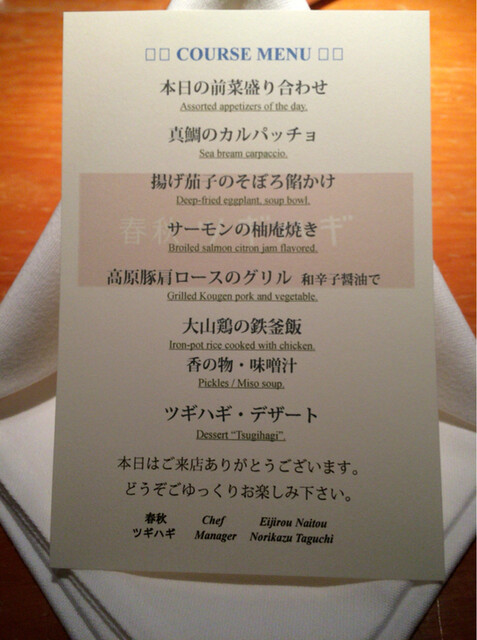 □□ COURSE MENU □□
本日の前菜盛り合わせ
Assorted appetizers of the day.
真鯛のカルパッチョ
Sea bream carpaccio.
揚げ茄子のそぼろ餡かけ
Deep-fried eggplant, soup bowl.
サーモンの柚庵焼き
Broiled salmon citron jam flavored.
春秋 ツギハギ
高原豚肩ロースのグリル 和辛子醤油で
Grilled Kougen pork and vegetable.
大山鶏の鉄釜飯
Iron-pot rice cooked with chicken.
香の物・味噌汁
Pickles / Miso soup.
ツギハギ・デザート
Dessert “Tsugihagi”.
本日はご来店ありがとうございます。
どうぞごゆっくりお楽しみ下さい。
春秋 Chef Eijirou Naitou
ツギハギ Manager Norikazu Taguchi